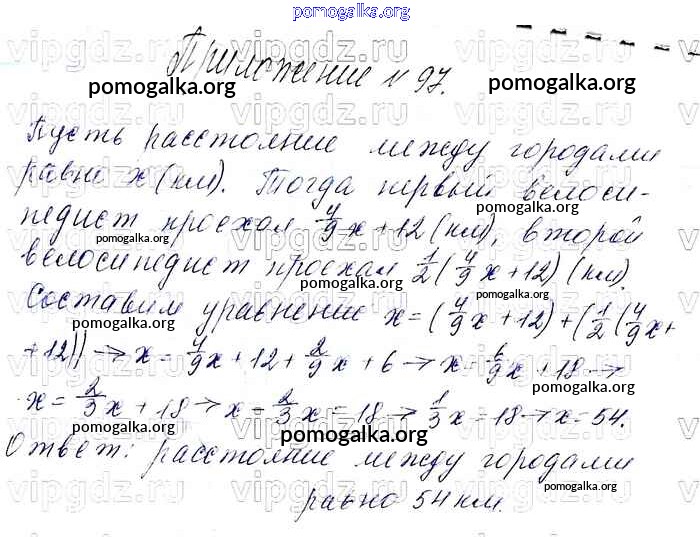 pomogalka.org
Приложение N 97.
Пусть расстояние между городами
равно x (км). Тогда первый велоси-
педист проехал 4/9x + 12 (км), второй
велосипедист проехал 1/2 (4/9x + 12) (км).
Составим уравнение x = (4/9x + 12) + (1/2 (4/9x +
+ 12)) → x = 4/9x + 12 + 2/9x + 6 → x = 6/9x + 18 →
x = 2/3x + 18 → x - 2/3x = 18 → 1/3x = 18 → x = 54.
Ответ: расстояние между городами
равно 54 км.